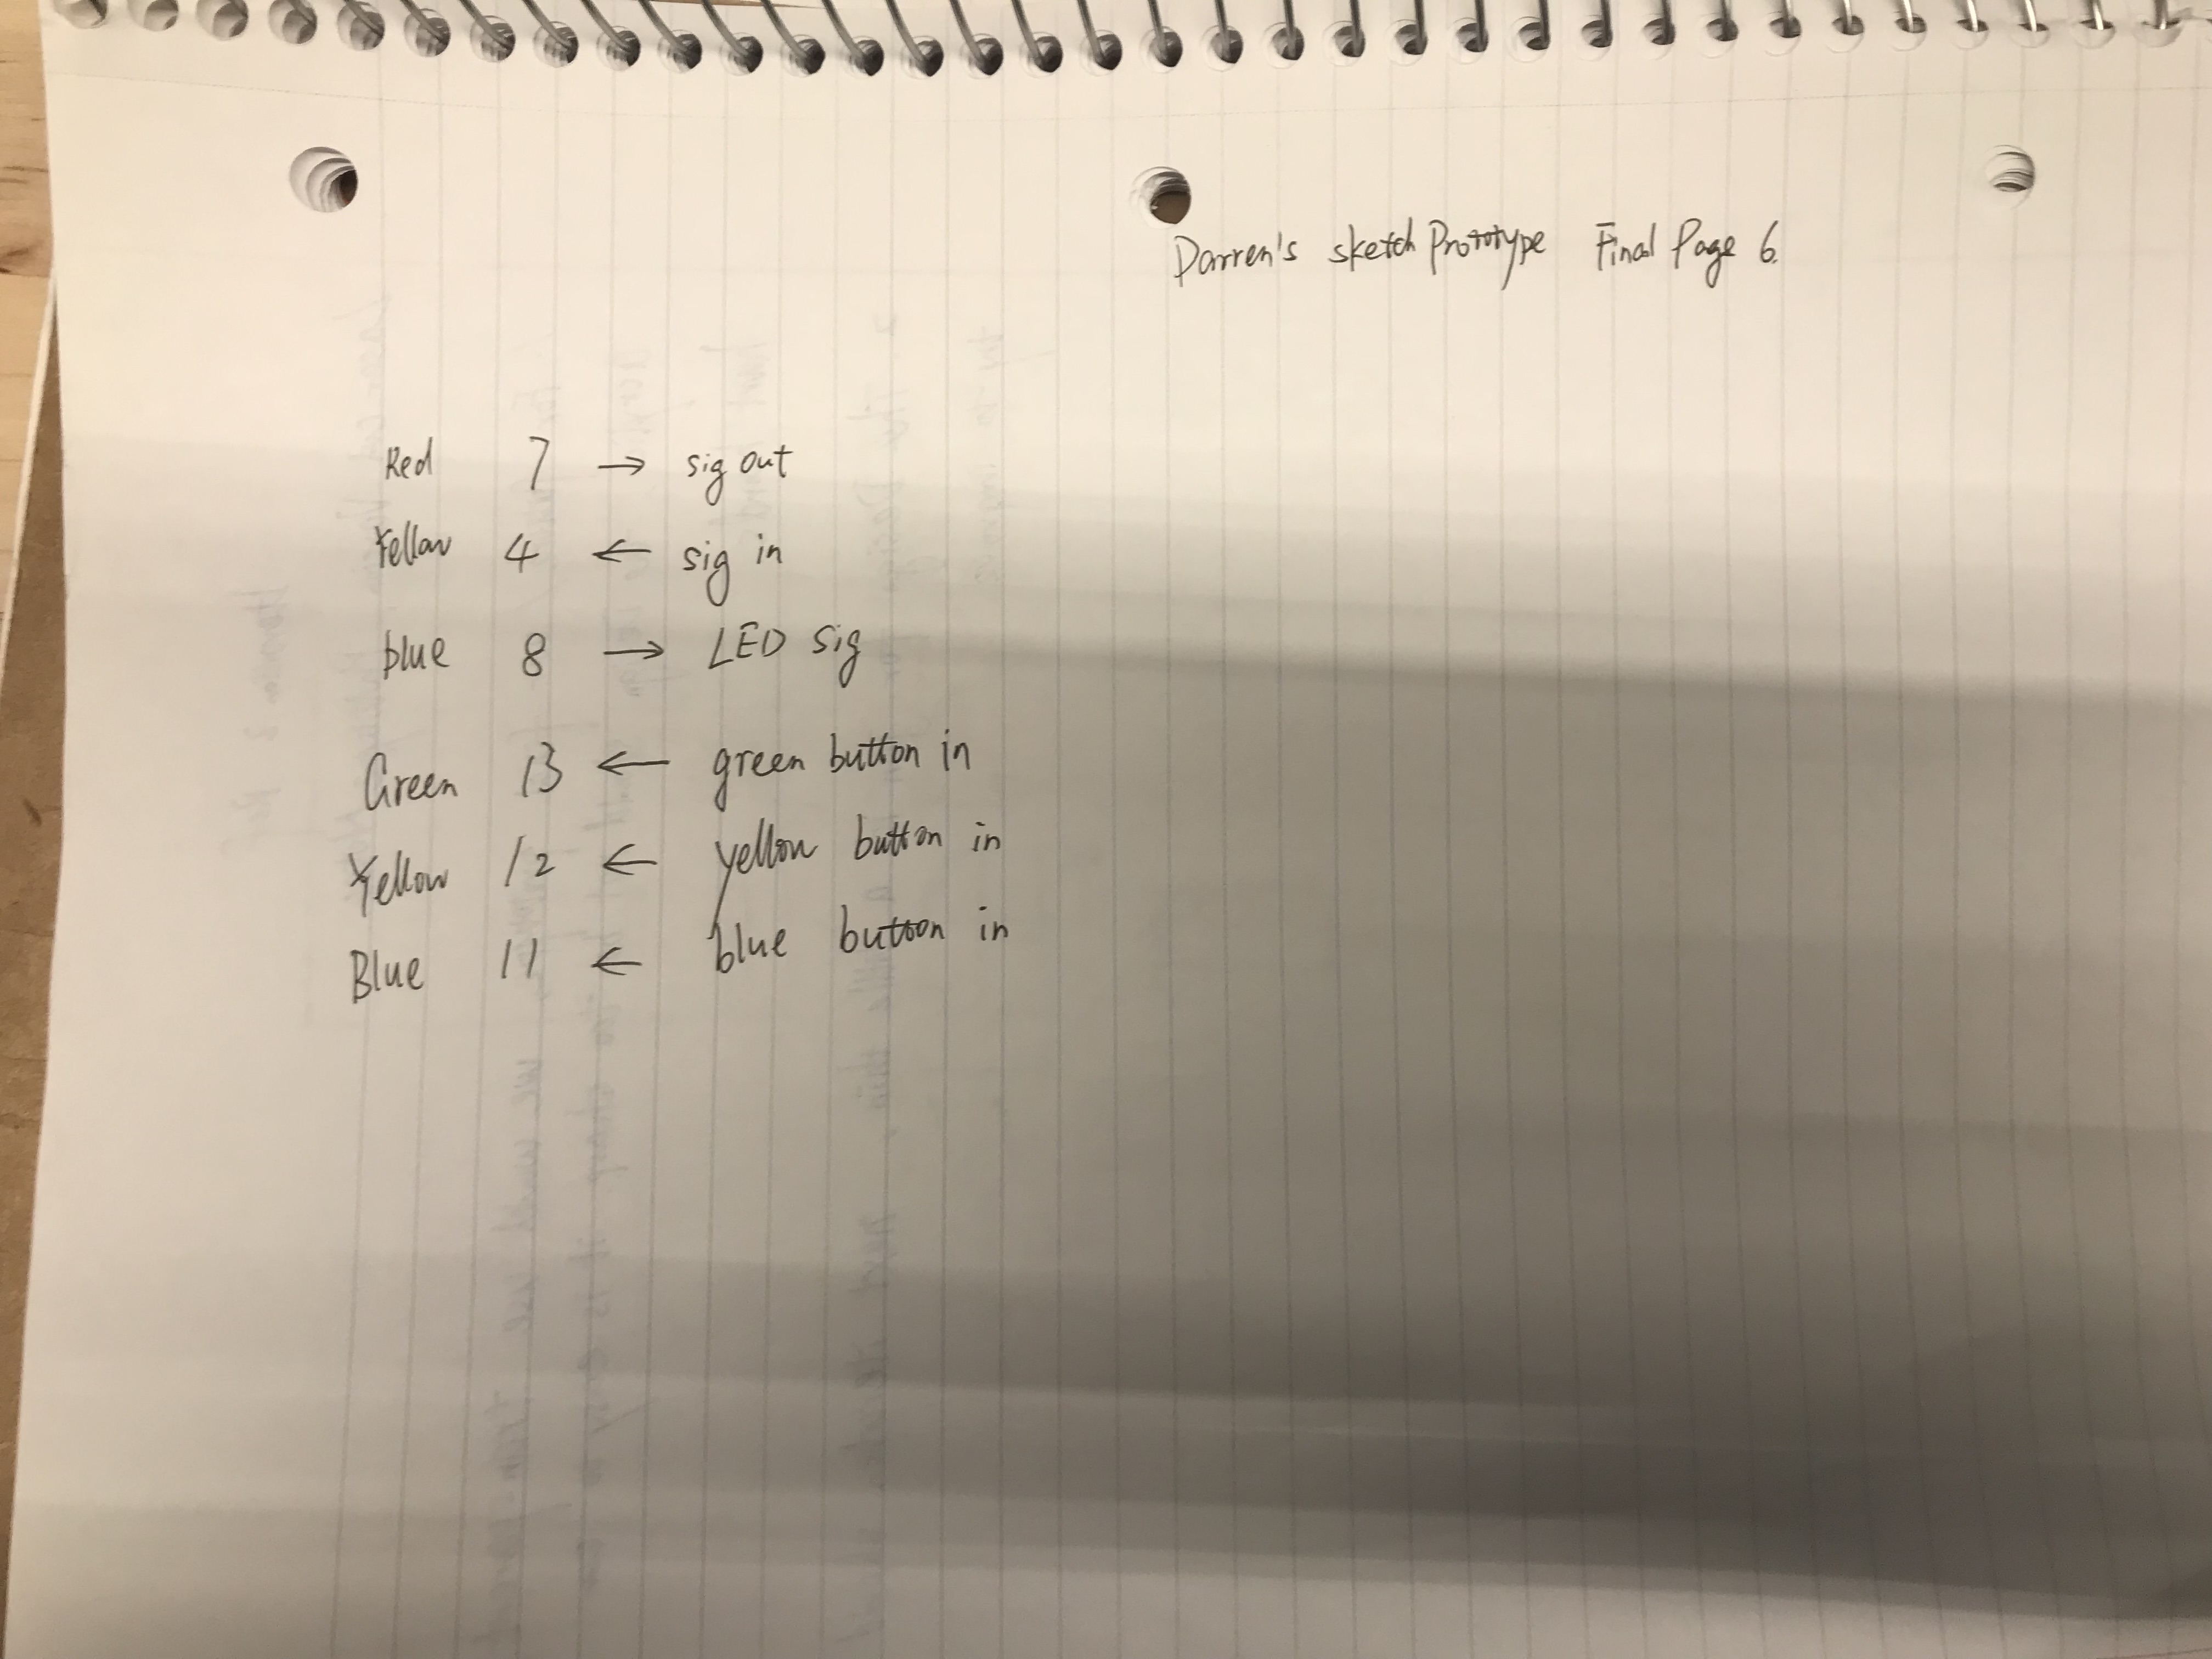 Darren's sketch Prototype Final Page 6.
Red 7 → sig out
Yellow 4 ← sig in
blue 8 → LED sig
Green 13 ← green button in
Yellow 12 ← yellow button in
Blue 11 ← blue button in